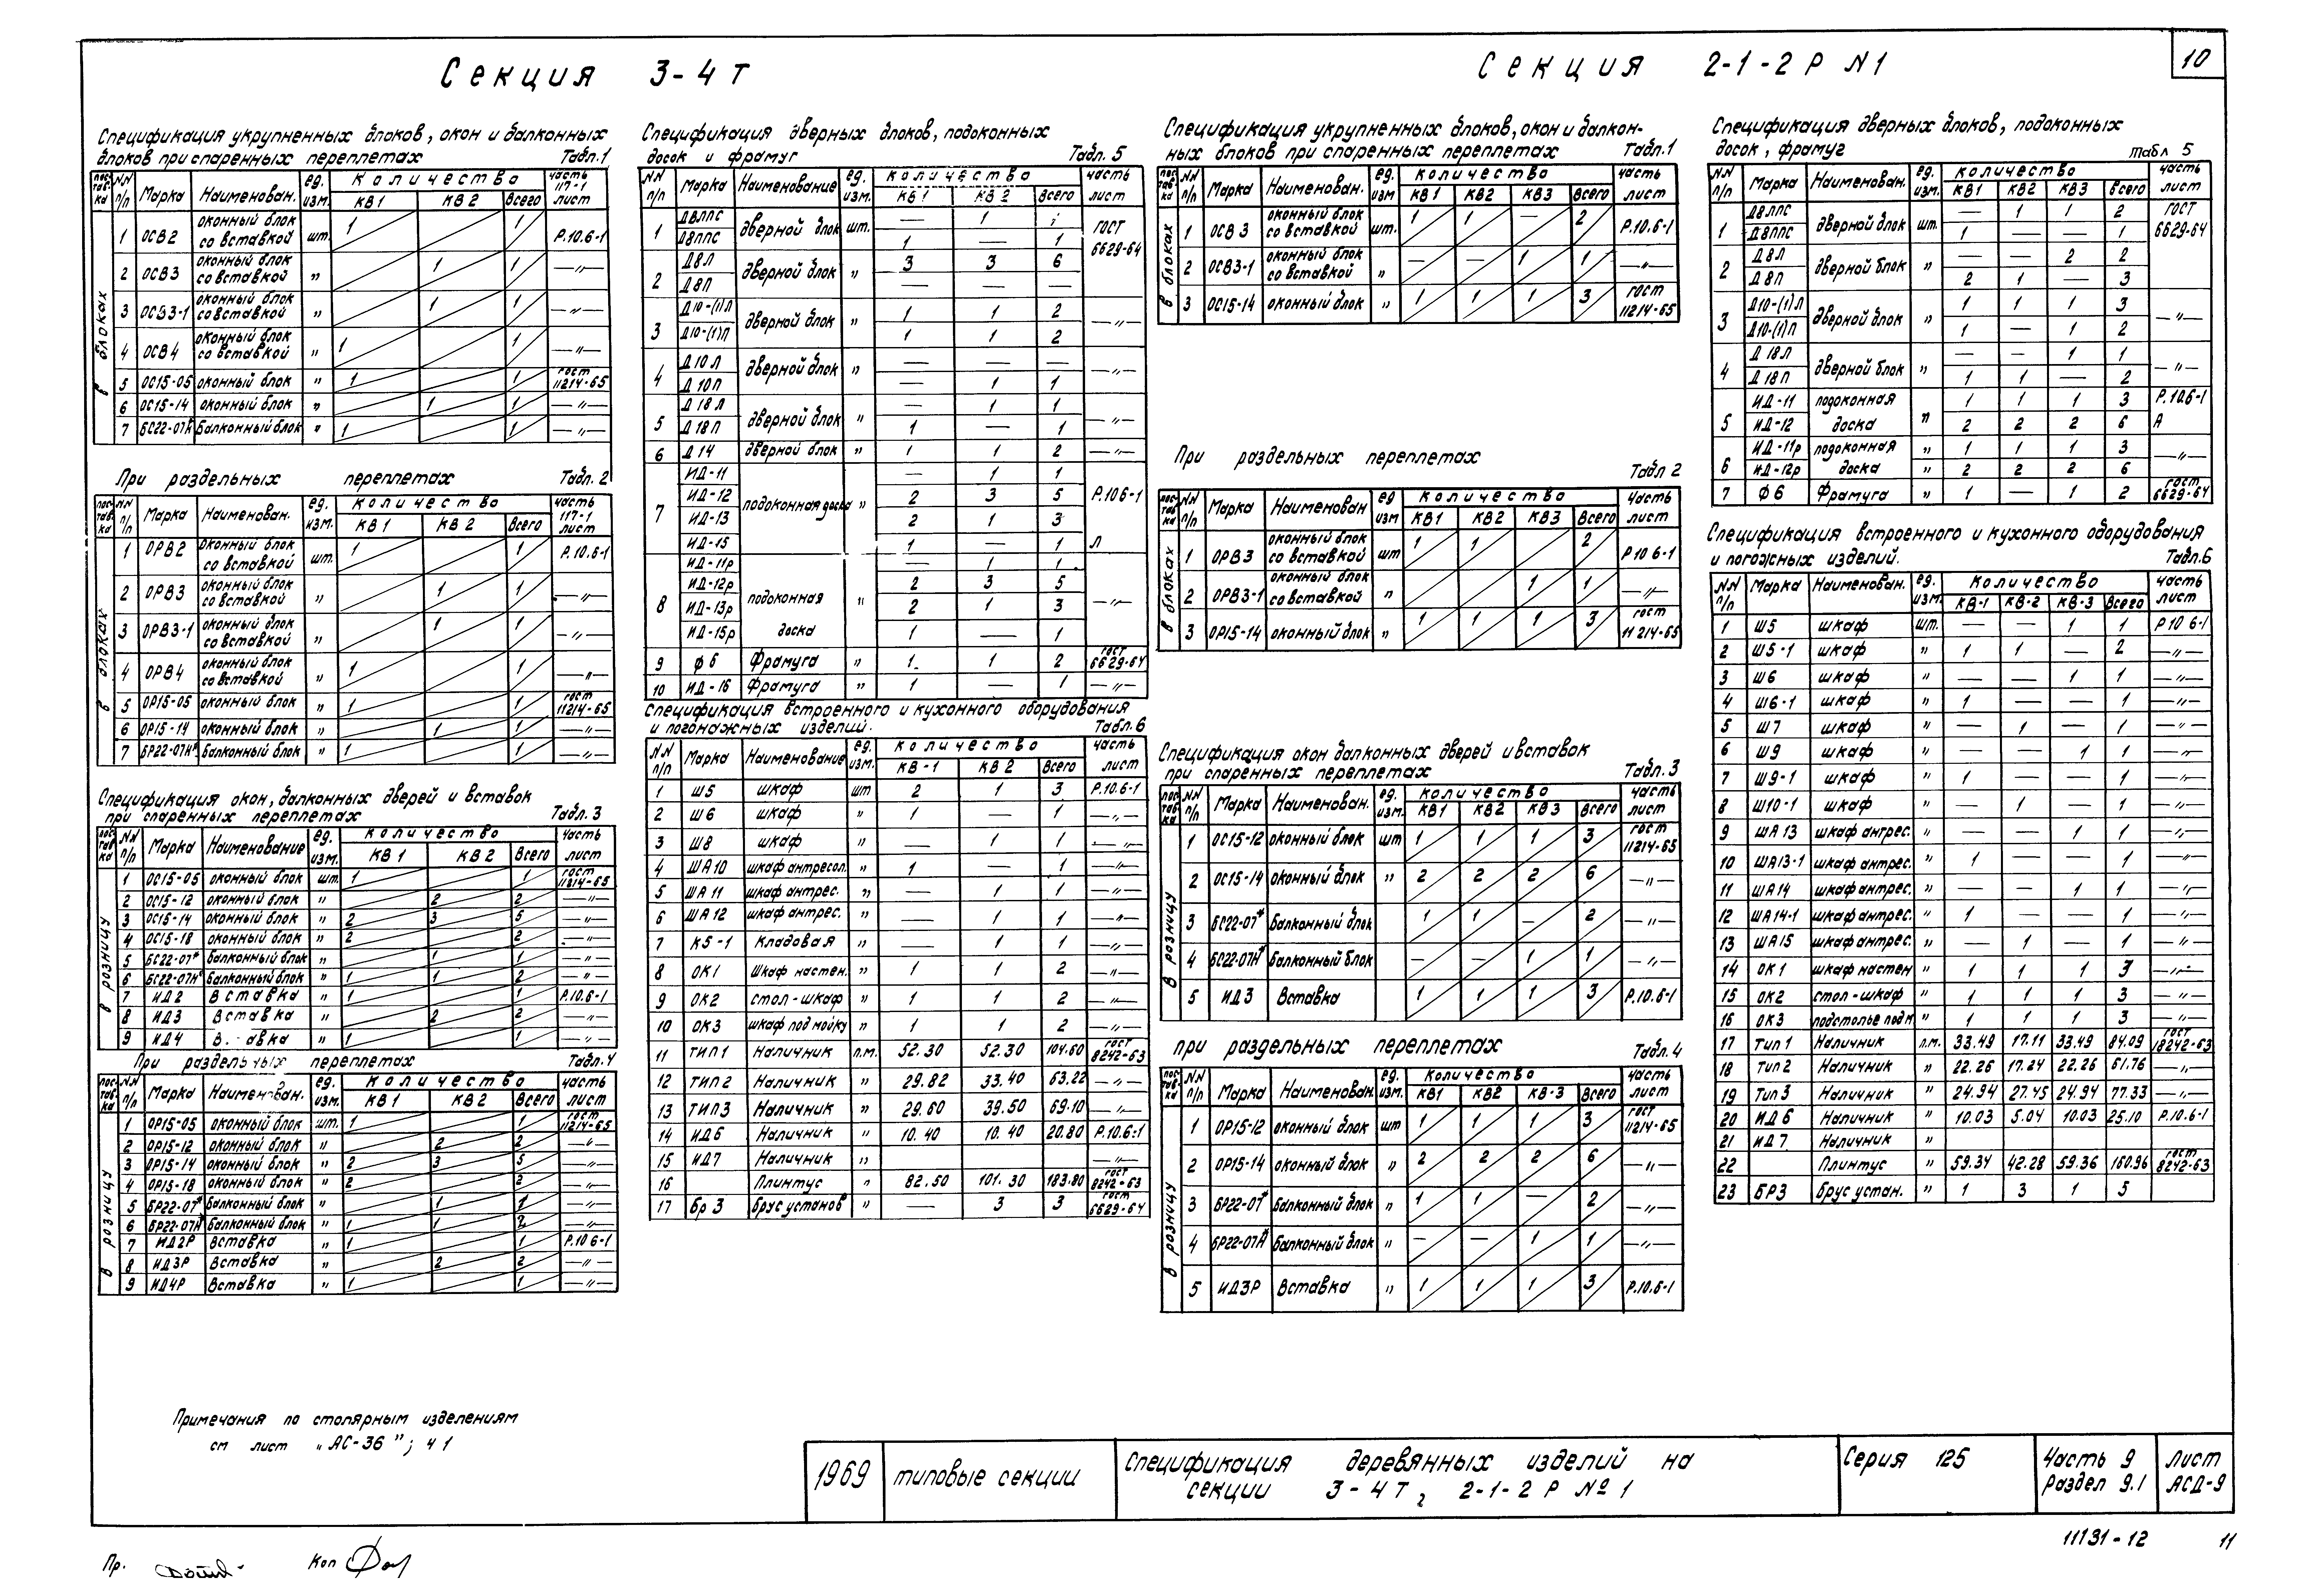 10
Секция 3-4Т
Секция 2-1-2Р №1
Спецификация укрупненных блоков, окон и балконных
блоков при спаренных переплетах Табл.1
поставка | NN п/п | Марка | Наименован. | ед. изм. | Количество | часть 117-1 лист
КВ1 | КВ2 | Всего
в блоках
1 | ОСВ2 | оконный блок со вставкой | шт. | 1 | | 1 | Р.10.6-1
2 | ОСВ3 | оконный блок со вставкой | „ | | 1 | 1 | —„—
3 | ОСВ3-1 | оконный блок со вставкой | „ | | 1 | 1 | —„—
4 | ОСВ4 | оконный блок со вставкой | „ | 1 | | 1 | —„—
5 | ОС15-05 | оконный блок | „ | 1 | | 1 | гост 11214-65
6 | ОС15-14 | оконный блок | „ | | 1 | 1 | —„—
7 | БС22-07Н | балконный блок | „ | 1 | | 1 | —„—
При раздельных переплетах Табл. 2
поставка | NN п/п | Марка | Наименован. | ед. изм. | Количество | часть 117-1 лист
КВ1 | КВ2 | Всего
в блоках
1 | ОРВ2 | оконный блок со вставкой | шт. | 1 | | 1 | Р.10.6-1
2 | ОРВ3 | оконный блок со вставкой | „ | | 1 | 1 | —„—
3 | ОРВ3-1 | оконный блок со вставкой | „ | | 1 | 1 | —„—
4 | ОРВ4 | оконный блок со вставкой | „ | 1 | | 1 | —„—
5 | ОР15-05 | оконный блок | „ | 1 | | 1 | гост 11214-65
6 | ОР15-14 | оконный блок | „ | | 1 | 1 | —„—
7 | БР22-07Н | балконный блок | „ | 1 | | 1 | —„—
Спецификация окон, балконных дверей и вставок
при спаренных переплетах Табл. 3
поставка | NN п/п | Марка | Наименование | ед. изм. | Количество | часть лист
КВ1 | КВ2 | Всего
в розницу
1 | ОС15-05 | оконный блок | шт. | 1 | | 1 | гост 11214-65
2 | ОС15-12 | оконный блок | „ | | 2 | 2 | —„—
3 | ОС15-14 | оконный блок | „ | 2 | 3 | 5 | —„—
4 | ОС15-18 | оконный блок | „ | 2 | | 2 | —„—
5 | БС22-07* | балконный блок | „ | | 1 | 1 | —„—
6 | БС22-07Н* | балконный блок | „ | 1 | 1 | 2 | —„—
7 | ИД2 | Вставка | „ | 1 | | 1 | Р.10.6-1
8 | ИД3 | Вставка | „ | | 2 | 2 | —„—
9 | ИД4 | В..авка | „ | 1 | | 1 | —„—
При раздельных переплетах Табл.4
поставка | NN п/п | Марка | Наименован. | ед. изм. | Количество | часть лист
КВ1 | КВ2 | Всего
в розницу
1 | ОР15-05 | оконный блок | шт. | 1 | | 1 | гост 11214-65
2 | ОР15-12 | оконный блок | „ | | 2 | 2 | —„—
3 | ОР15-14 | оконный блок | „ | 2 | 3 | 5 | —„—
4 | ОР15-18 | оконный блок | „ | 2 | | 2 | —„—
5 | БР22-07* | балконный блок | „ | | 1 | 1 | —„—
6 | БР22-07Н* | балконный блок | „ | 1 | 1 | 2 | —„—
7 | ИД2Р | Вставка | „ | 1 | | 1 | Р.10 6-1
8 | ИД3Р | Вставка | „ | | 2 | 2 | —„—
9 | ИД4Р | Вставка | „ | 1 | | 1 | —„—
Примечания по столярным изделениям
см лист „АС-36”; ч 1
Спецификация дверных блоков, подоконных
досок и фрамуг Табл. 5
NN п/п | Марка | Наименование | ед. изм. | Количество | часть лист
КВ1 | КВ2 | Всего
1 | Д8ЛПС | дверной блок | шт. | — | 1 | 1 | ГОСТ 6629-64
Д8ППС | 1 | — | 1
2 | Д8Л | дверной блок | „ | 3 | 3 | 6
Д8П | — | — | —
3 | Д10-(1)Л | дверной блок | „ | 1 | 1 | 2 | —„—
Д10-(1)П | 1 | 1 | 2
4 | Д10Л | дверной блок | „ | — | — | — | —„—
Д10П | — | 1 | 1
5 | Д18Л | дверной блок | „ | — | 1 | 1 | —„—
Д18П | 1 | — | 1
6 | Д14 | дверной блок | „ | 1 | 1 | 2 | —„—
7 | ИД-11 | подоконная доска | „ | — | 1 | 1 | Р.10 6-1
ИД-12 | 2 | 3 | 5
ИД-13 | 2 | 1 | 3
ИД-15 | 1 | — | 1 | Л
8 | ИД-11р | подоконная доска | „ | — | 1 | 1 | —„—
ИД-12р | 2 | 3 | 5
ИД-13р | 2 | 1 | 3
ИД-15р | 1 | — | 1
9 | Ф6 | Фрамуга | „ | 1 | 1 | 2 | гост 6629-64
10 | ИД-16 | Фрамуга | „ | 1 | — | 1 | —„—
Спецификация встроенного и кухонного оборудования
и погонажных изделий. Табл.6
NN п/п | Марка | Наименование | ед. изм. | Количество | часть лист
КВ-1 | КВ2 | Всего
1 | Ш5 | шкаф | шт | 2 | 1 | 3 | Р.10.6-1
2 | Ш6 | шкаф | „ | 1 | — | 1 | —„—
3 | Ш8 | шкаф | „ | — | 1 | 1 | —„—
4 | ША10 | шкаф антресол. | „ | 1 | — | 1 | —„—
5 | ША11 | шкаф антрес. | „ | — | 1 | 1 | —„—
6 | ША12 | шкаф антрес. | „ | — | 1 | 1 | —„—
7 | К5-1 | Кладовая | „ | — | 1 | 1 | —„—
8 | ОК1 | Шкаф настен. | „ | 1 | 1 | 2 | —„—
9 | ОК2 | стол-шкаф | „ | 1 | 1 | 2 | —„—
10 | ОК3 | шкаф под мойку | „ | 1 | 1 | 2 | —„—
11 | ТИП1 | Наличник | п.м. | 52.30 | 52.30 | 104.60 | гост 8242-63
12 | ТИП2 | Наличник | „ | 29.82 | 33.40 | 63.22 | —„—
13 | ТИП3 | Наличник | „ | 29.60 | 39.50 | 69.10 | —„—
14 | ИД6 | Наличник | „ | 10.40 | 10.40 | 20.80 | Р.10.6-1
15 | ИД7 | Наличник | „ | | | | —„—
16 | | Плинтус | „ | 82.50 | 101.30 | 183.80 | гост 8242-63
17 | бр 3 | брус установ | „ | — | 3 | 3 | гост 6629-64
Спецификация укрупненных блоков, окон и балкон-
ных блоков при спаренных переплетах Табл.1
поставка | NN п/п | Марка | Наименован. | ед. изм. | Количество | часть лист
КВ1 | КВ2 | КВ3 | Всего
в блоках
1 | ОСВ3 | оконный блок со вставкой | шт. | 1 | 1 | — | 2 | Р.10.6-1
2 | ОСВ3-1 | оконный блок со вставкой | „ | — | — | 1 | 1 | —„—
3 | ОС15-14 | оконный блок | „ | 1 | 1 | 1 | 3 | гост 11214-65
При раздельных переплетах Табл 2
поставка | NN п/п | Марка | Наименован | ед изм | Количество | часть лист
КВ1 | КВ2 | КВ3 | Всего
в блоках
1 | ОРВ3 | оконный блок со вставкой | шт | 1 | 1 | | 2 | Р10 6-1
2 | ОРВ3-1 | оконный блок со вставкой | „ | | | 1 | 1 | —„—
3 | ОР15-14 | оконный блок | „ | 1 | 1 | 1 | 3 | гост 11214-65
Спецификация окон балконных дверей и вставок
при спаренных переплетах Табл. 3
поставка | NN п/п | Марка | Наименован. | ед. изм. | Количество | часть лист
КВ1 | КВ2 | КВ3 | Всего
в розницу
1 | ОС15-12 | оконный блок | шт | 1 | 1 | 1 | 3 | гост 11214-65
2 | ОС15-14 | оконный блок | „ | 2 | 2 | 2 | 6 | —„—
3 | БС22-07* | балконный блок | | 1 | 1 | — | 2 | —„—
4 | БС22-07Н* | балконный блок | | — | — | 1 | 1 | —„—
5 | ИД3 | Вставка | | 1 | 1 | 1 | 3 | Р.10.6-1
при раздельных переплетах Табл.4
поставка | NN п/п | Марка | Наименован. | ед. изм. | Количество | часть лист
КВ1 | КВ2 | КВ-3 | Всего
в розницу
1 | ОР15-12 | оконный блок | шт | 1 | 1 | 1 | 3 | гост 11214-65
2 | ОР15-14 | оконный блок | „ | 2 | 2 | 2 | 6 | —„—
3 | БР22-07* | балконный блок | „ | 1 | 1 | — | 2 | —„—
4 | БР22-07Н* | балконный блок | „ | — | — | 1 | 1 | —„—
5 | ИД3Р | Вставка | „ | 1 | 1 | 1 | 3 | Р.10.6-1
Спецификация дверных блоков, подоконных
досок, фрамуг табл 5
NN п/п | Марка | Наименован. | ед. изм. | Количество | часть лист
КВ1 | КВ2 | КВ3 | Всего
1 | Д8ЛПС | дверной блок | шт. | — | 1 | 1 | 2 | ГОСТ 6629-64
Д8ППС | 1 | — | — | 1
2 | Д8Л | дверной блок | „ | — | — | 2 | 2
Д8П | 2 | 1 | — | 3
3 | Д10-(1)Л | дверной блок | „ | 1 | 1 | 1 | 3 | —„—
Д10-(1)П | 1 | — | 1 | 2
4 | Д18Л | дверной блок | „ | — | — | 1 | 1 | —„—
Д18П | 1 | 1 | — | 2
5 | ИД-11 | подоконная доска | „ | 1 | 1 | 1 | 3 | Р.10.6-1
ИД-12 | 2 | 2 | 2 | 6 | Л
6 | ИД-11р | подоконная доска | „ | 1 | 1 | 1 | 3 | —„—
ИД-12р | „ | 2 | 2 | 2 | 6
7 | Ф6 | Фрамуга | „ | 1 | — | 1 | 2 | гост 6629-64
Спецификация встроенного и кухонного оборудования
и погожных изделий. Табл.6
NN п/п | Марка | Наименован. | ед. изм. | Количество | часть лист
КВ-1 | КВ-2 | КВ-3 | Всего
1 | Ш5 | шкаф | шт. | — | — | 1 | 1 | Р10 6-1
2 | Ш5-1 | шкаф | „ | 1 | 1 | — | 2 | —„—
3 | Ш6 | шкаф | „ | — | — | 1 | 1 | —„—
4 | Ш6-1 | шкаф | „ | 1 | — | — | 1 | —„—
5 | Ш7 | шкаф | „ | — | 1 | — | 1 | —„—
6 | Ш9 | шкаф | „ | — | — | 1 | 1 | —„—
7 | Ш9-1 | шкаф | „ | 1 | — | — | 1 | —„—
8 | Ш10-1 | шкаф | „ | — | 1 | — | 1 | —„—
9 | ША13 | шкаф антрес. | „ | — | — | 1 | 1 | —„—
10 | ША13-1 | шкаф антрес. | „ | 1 | — | — | 1 | —„—
11 | ША14 | шкаф антрес. | „ | — | — | 1 | 1 | —„—
12 | ША14-1 | шкаф антрес. | „ | 1 | — | — | 1 | —„—
13 | ША15 | шкаф антрес. | „ | — | 1 | — | 1 | —„—
14 | ОК1 | шкаф настен | „ | 1 | 1 | 1 | 3 | —„—
15 | ОК2 | стол-шкаф | „ | 1 | 1 | 1 | 3 | —„—
16 | ОК3 | подстолье под м. | „ | 1 | 1 | 1 | 3 | —„—
17 | Тип 1 | Наличник | п.м. | 33.49 | 17.11 | 33.49 | 84.09 | гост 8242-63
18 | Тип2 | Наличник | „ | 22.26 | 17.24 | 22.26 | 61.76 | —„—
19 | Тип 3 | Наличник | „ | 24.94 | 27.45 | 24.94 | 77.33 | —„—
20 | ИД6 | Наличник | „ | 10.03 | 5.04 | 10.03 | 25.10 | Р.10.6-1
21 | ИД7 | Наличник | „
22 | | Плинтус | „ | 59.34 | 42.28 | 59.36 | 160.96 | гост 8242-63
23 | БР3 | брус устан. | „ | 1 | 3 | 1 | 5
1969 | типовые секции | Спецификация деревянных изделий на секции 3-4Т, 2-1-2Р №1 | Серия 125 | Часть 9 раздел 9.1 | лист АСД-9
11131-12 11
Пр. Коп